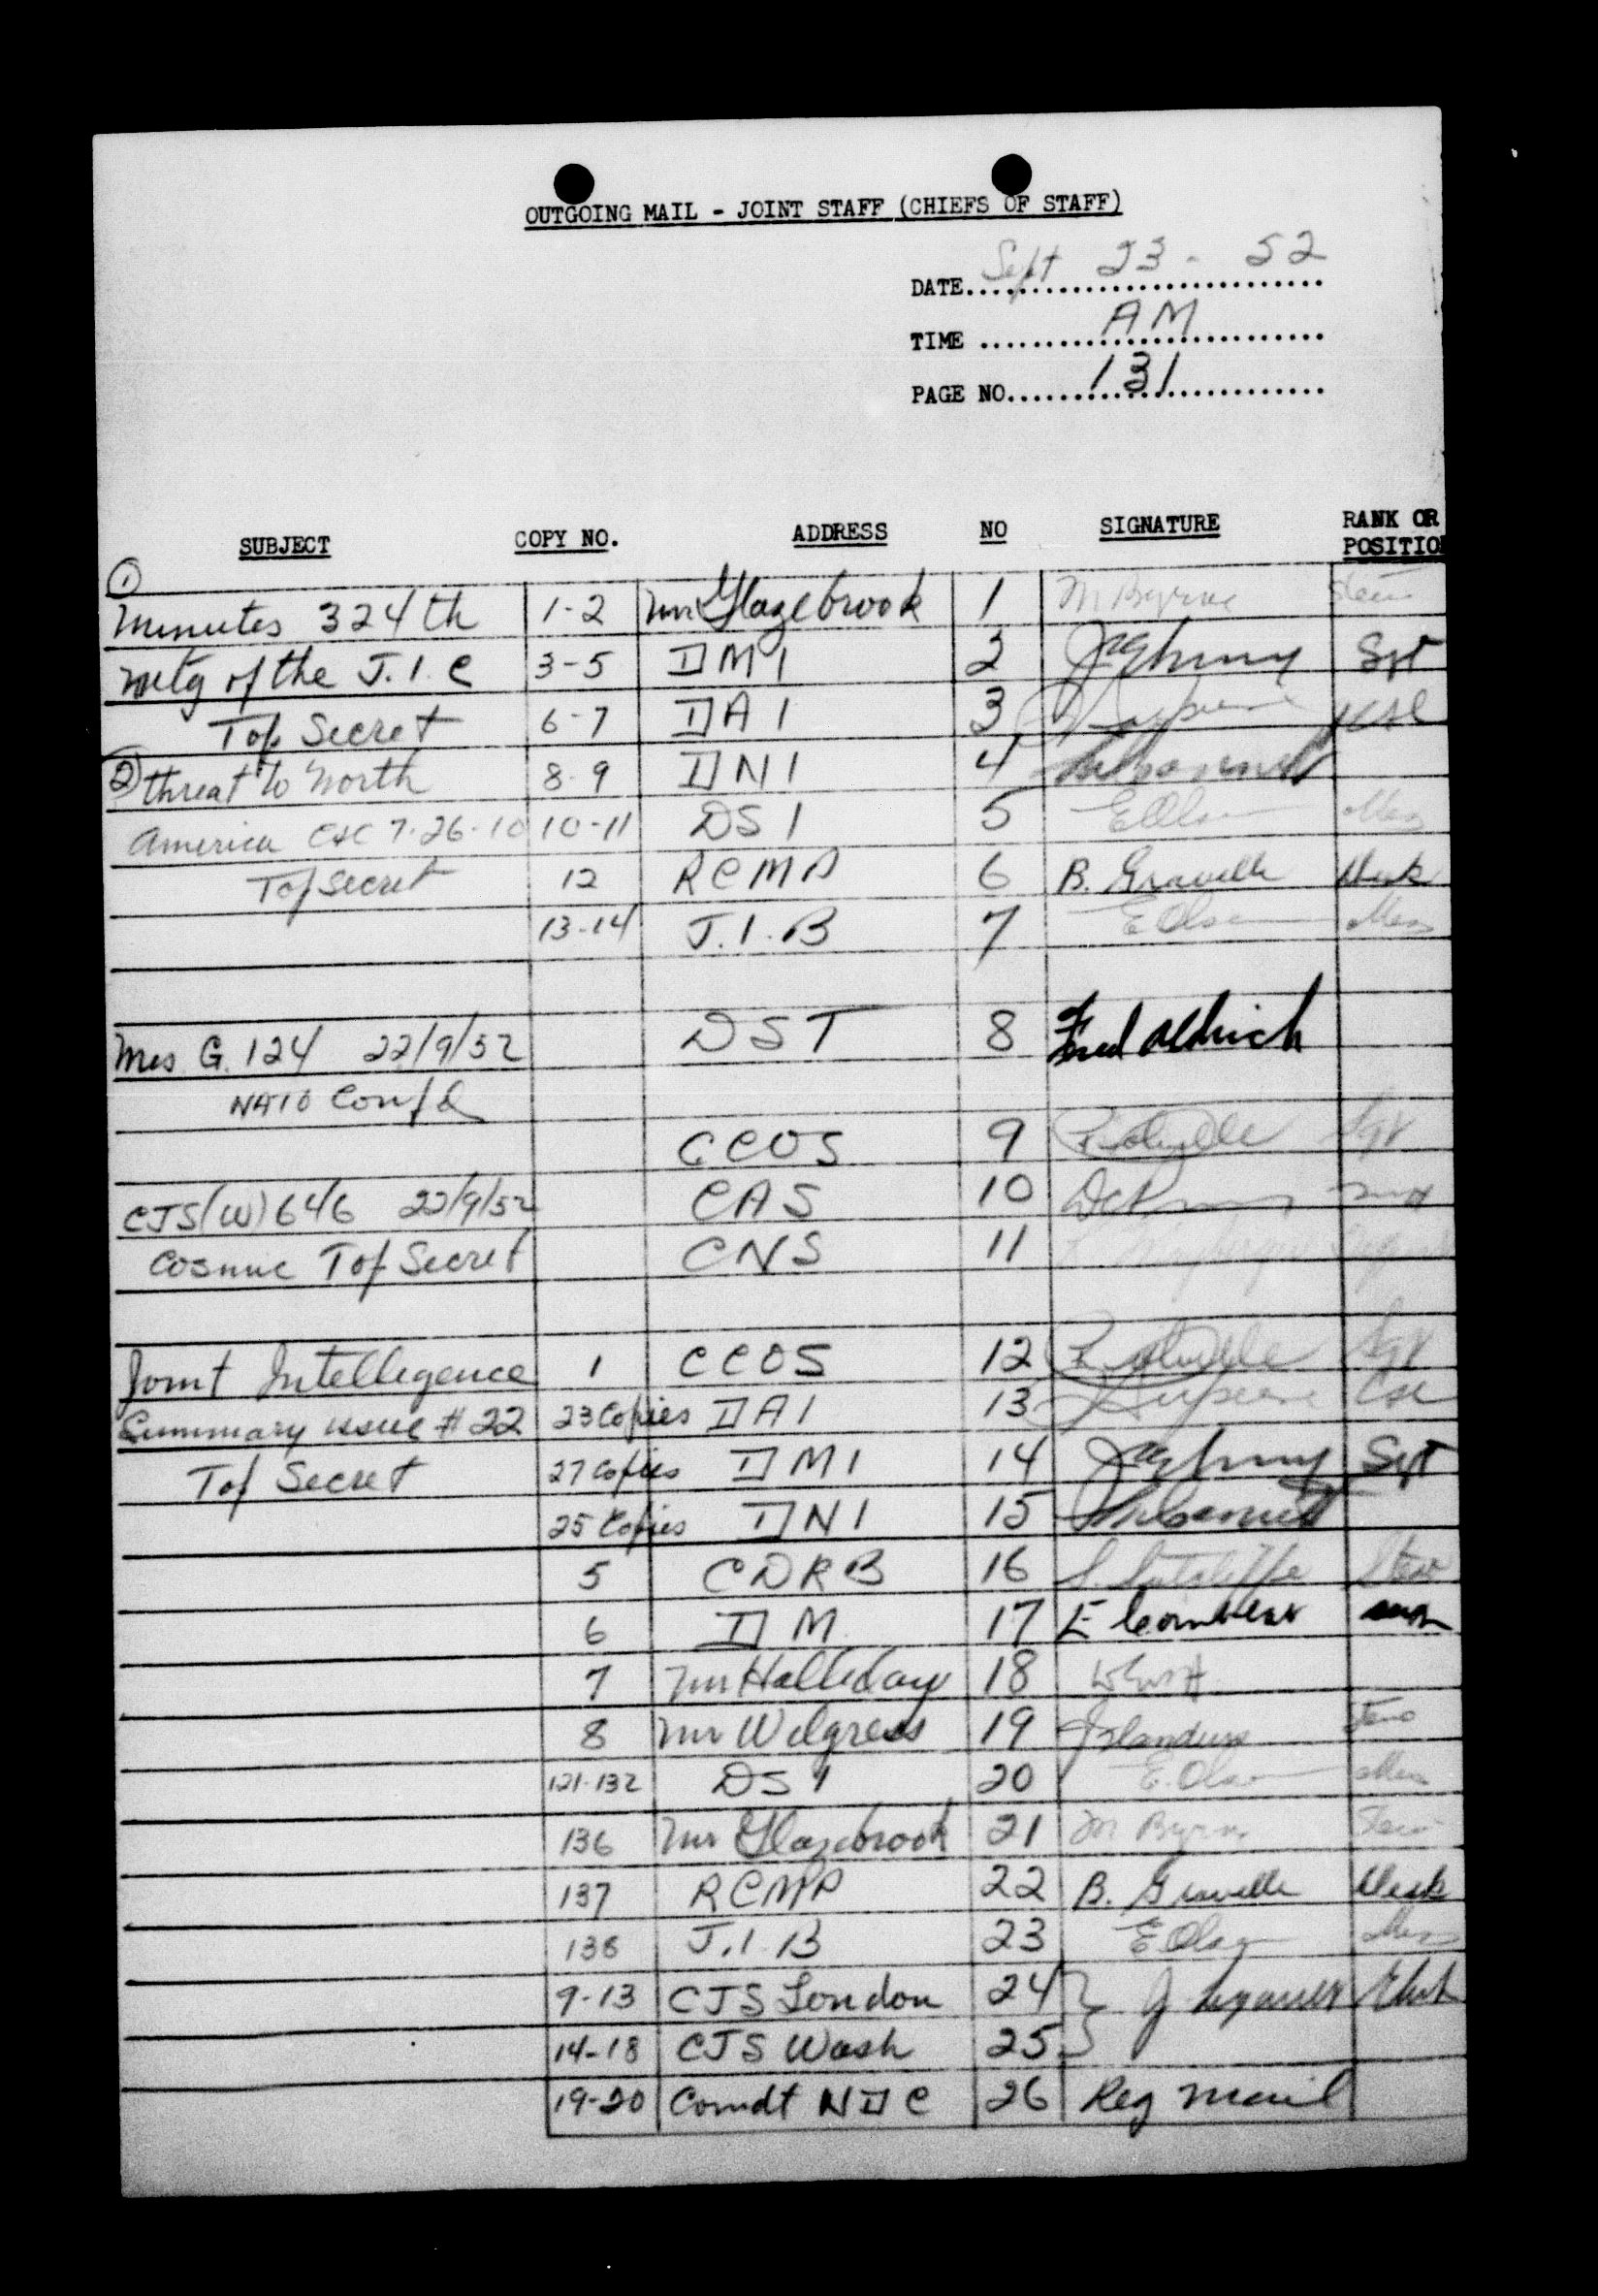 OUTGOING MAIL - JOINT STAFF (CHIEFS OF STAFF)
DATE Sept 23 - 52
TIME AM
PAGE NO 131
SUBJECT COPY NO. ADDRESS NO SIGNATURE RANK OR POSITION
①
Minutes 324th 1-2 Mr Glazebrook 1 M Byrne
mtg of the J.I.C 3-5 DMI 2 Sgt
Top Secret 6-7 DAI 3
② threat to North 8-9 DNI 4
America CSC 7-26-10 10-11 DSI 5 E Olsen Mess
Top Secret 12 RCMP 6 B. Gravelle Clerk
13-14 J.I.B 7 E Olsen Mess
DST 8 Fred Aldrich
Mes G. 124 22/9/52
NATO Confd
CCOS 9 Sgt
CJS(W) 646 22/9/52 CAS 10
Cosmic Top Secret CNS 11
Joint Intelligence 1 CCOS 12 Sgt
Summary issue # 22 23 Copies DAI 13
Top Secret 27 Copies DMI 14 Sgt
25 Copies DNI 15
5 CDRB 16 S. Sutcliffe Steno
6 DM 17 E
7 Mr Halliday 18
8 Mr Wilgress 19 Steno
121-132 DSI 20 E. Olsen Mess
136 Mr Glazebrook 21 M Byrne
137 RCMP 22 B. Gravelle Clerk
138 J.I.B 23 E Olsen Mess
9-13 CJS London 24 J Clerk
14-18 CJS Wash 25
19-20 Comdt NDC 26 Reg Mail